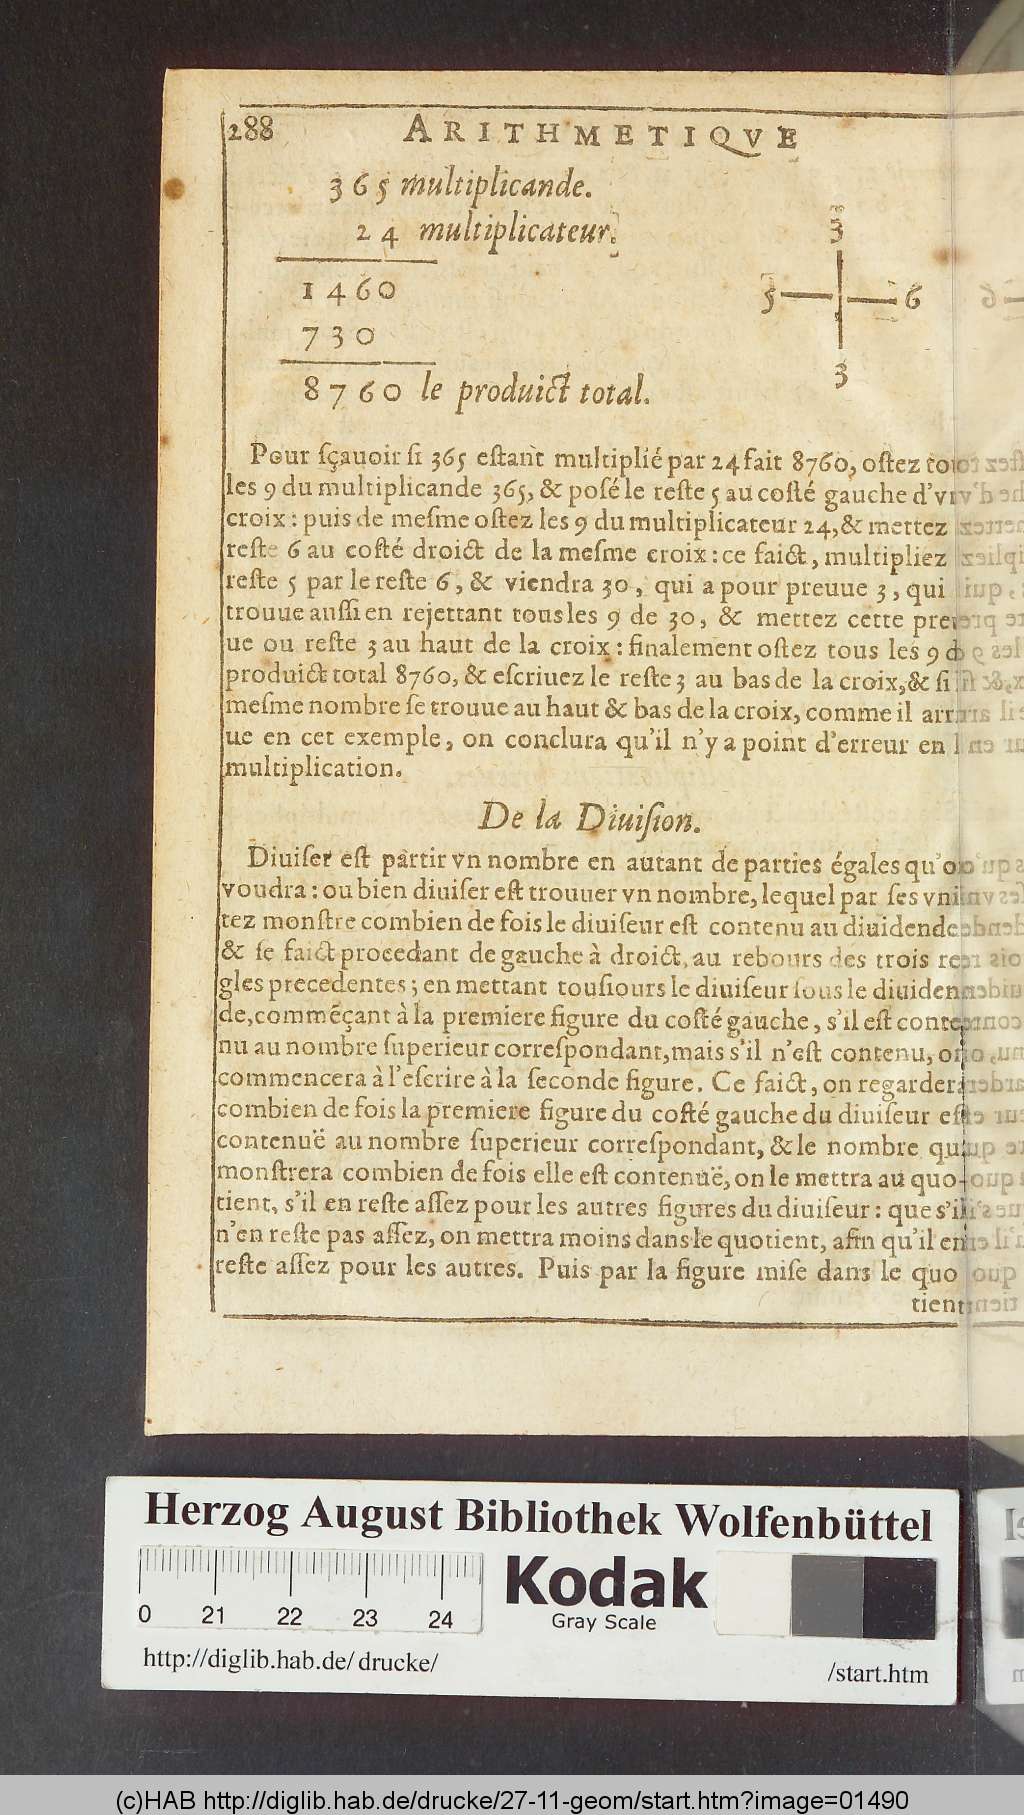 288 ARITHMETIQVE
3 6 5 multiplicande.
2 4 multiplicateur.
1 4 6 0
7 3 0
8 7 6 0 le produict total.
3
5 6
3
Pour sçauoir si 365 estant multiplié par 24 fait 8760, ostez tous
les 9 du multiplicande 365, & posé le reste 5 au costé gauche d'vne
croix: puis de mesme ostez les 9 du multiplicateur 24, & mettez
reste 6 au costé droict de la mesme croix: ce faict, multipliez
reste 5 par le reste 6, & viendra 30, qui a pour preuue 3, qui
trouue aussi en rejettant tous les 9 de 30, & mettez cette preu-
ue ou reste 3 au haut de la croix: finalement ostez tous les 9
produict total 8760, & escriuez le reste 3 au bas de la croix, & si
mesme nombre se trouue au haut & bas de la croix, comme il arri-
ue en cet exemple, on conclura qu'il n'y a point d'erreur en
multiplication.
De la Diuision.
Diuiser est partir vn nombre en autant de parties égales qu'on
voudra: ou bien diuiser est trouuer vn nombre, lequel par ses vni-
tez monstre combien de fois le diuiseur est contenu au diuidende
& se faict procedant de gauche à droict, au rebours des trois re-
gles precedentes; en mettant tousiours le diuiseur sous le diuiden-
de, commēçant à la premiere figure du costé gauche, s'il est conte-
nu au nombre superieur correspondant, mais s'il n'est contenu, on
commencera à l'escrire à la seconde figure. Ce faict, on regardera
combien de fois la premiere figure du costé gauche du diuiseur est
contenuë au nombre superieur correspondant, & le nombre qui
monstrera combien de fois elle est contenuë, on le mettra au quo-
tient, s'il en reste assez pour les autres figures du diuiseur: que s'il
n'en reste pas assez, on mettra moins dans le quotient, afin qu'il en
reste assez pour les autres. Puis par la figure mise dans le quo
tient
Herzog August Bibliothek Wolfenbüttel
0 21 22 23 24
Kodak
Gray Scale
http://diglib.hab.de/drucke/
/start.htm
(c)HAB http://diglib.hab.de/drucke/27-11-geom/start.htm?image=01490